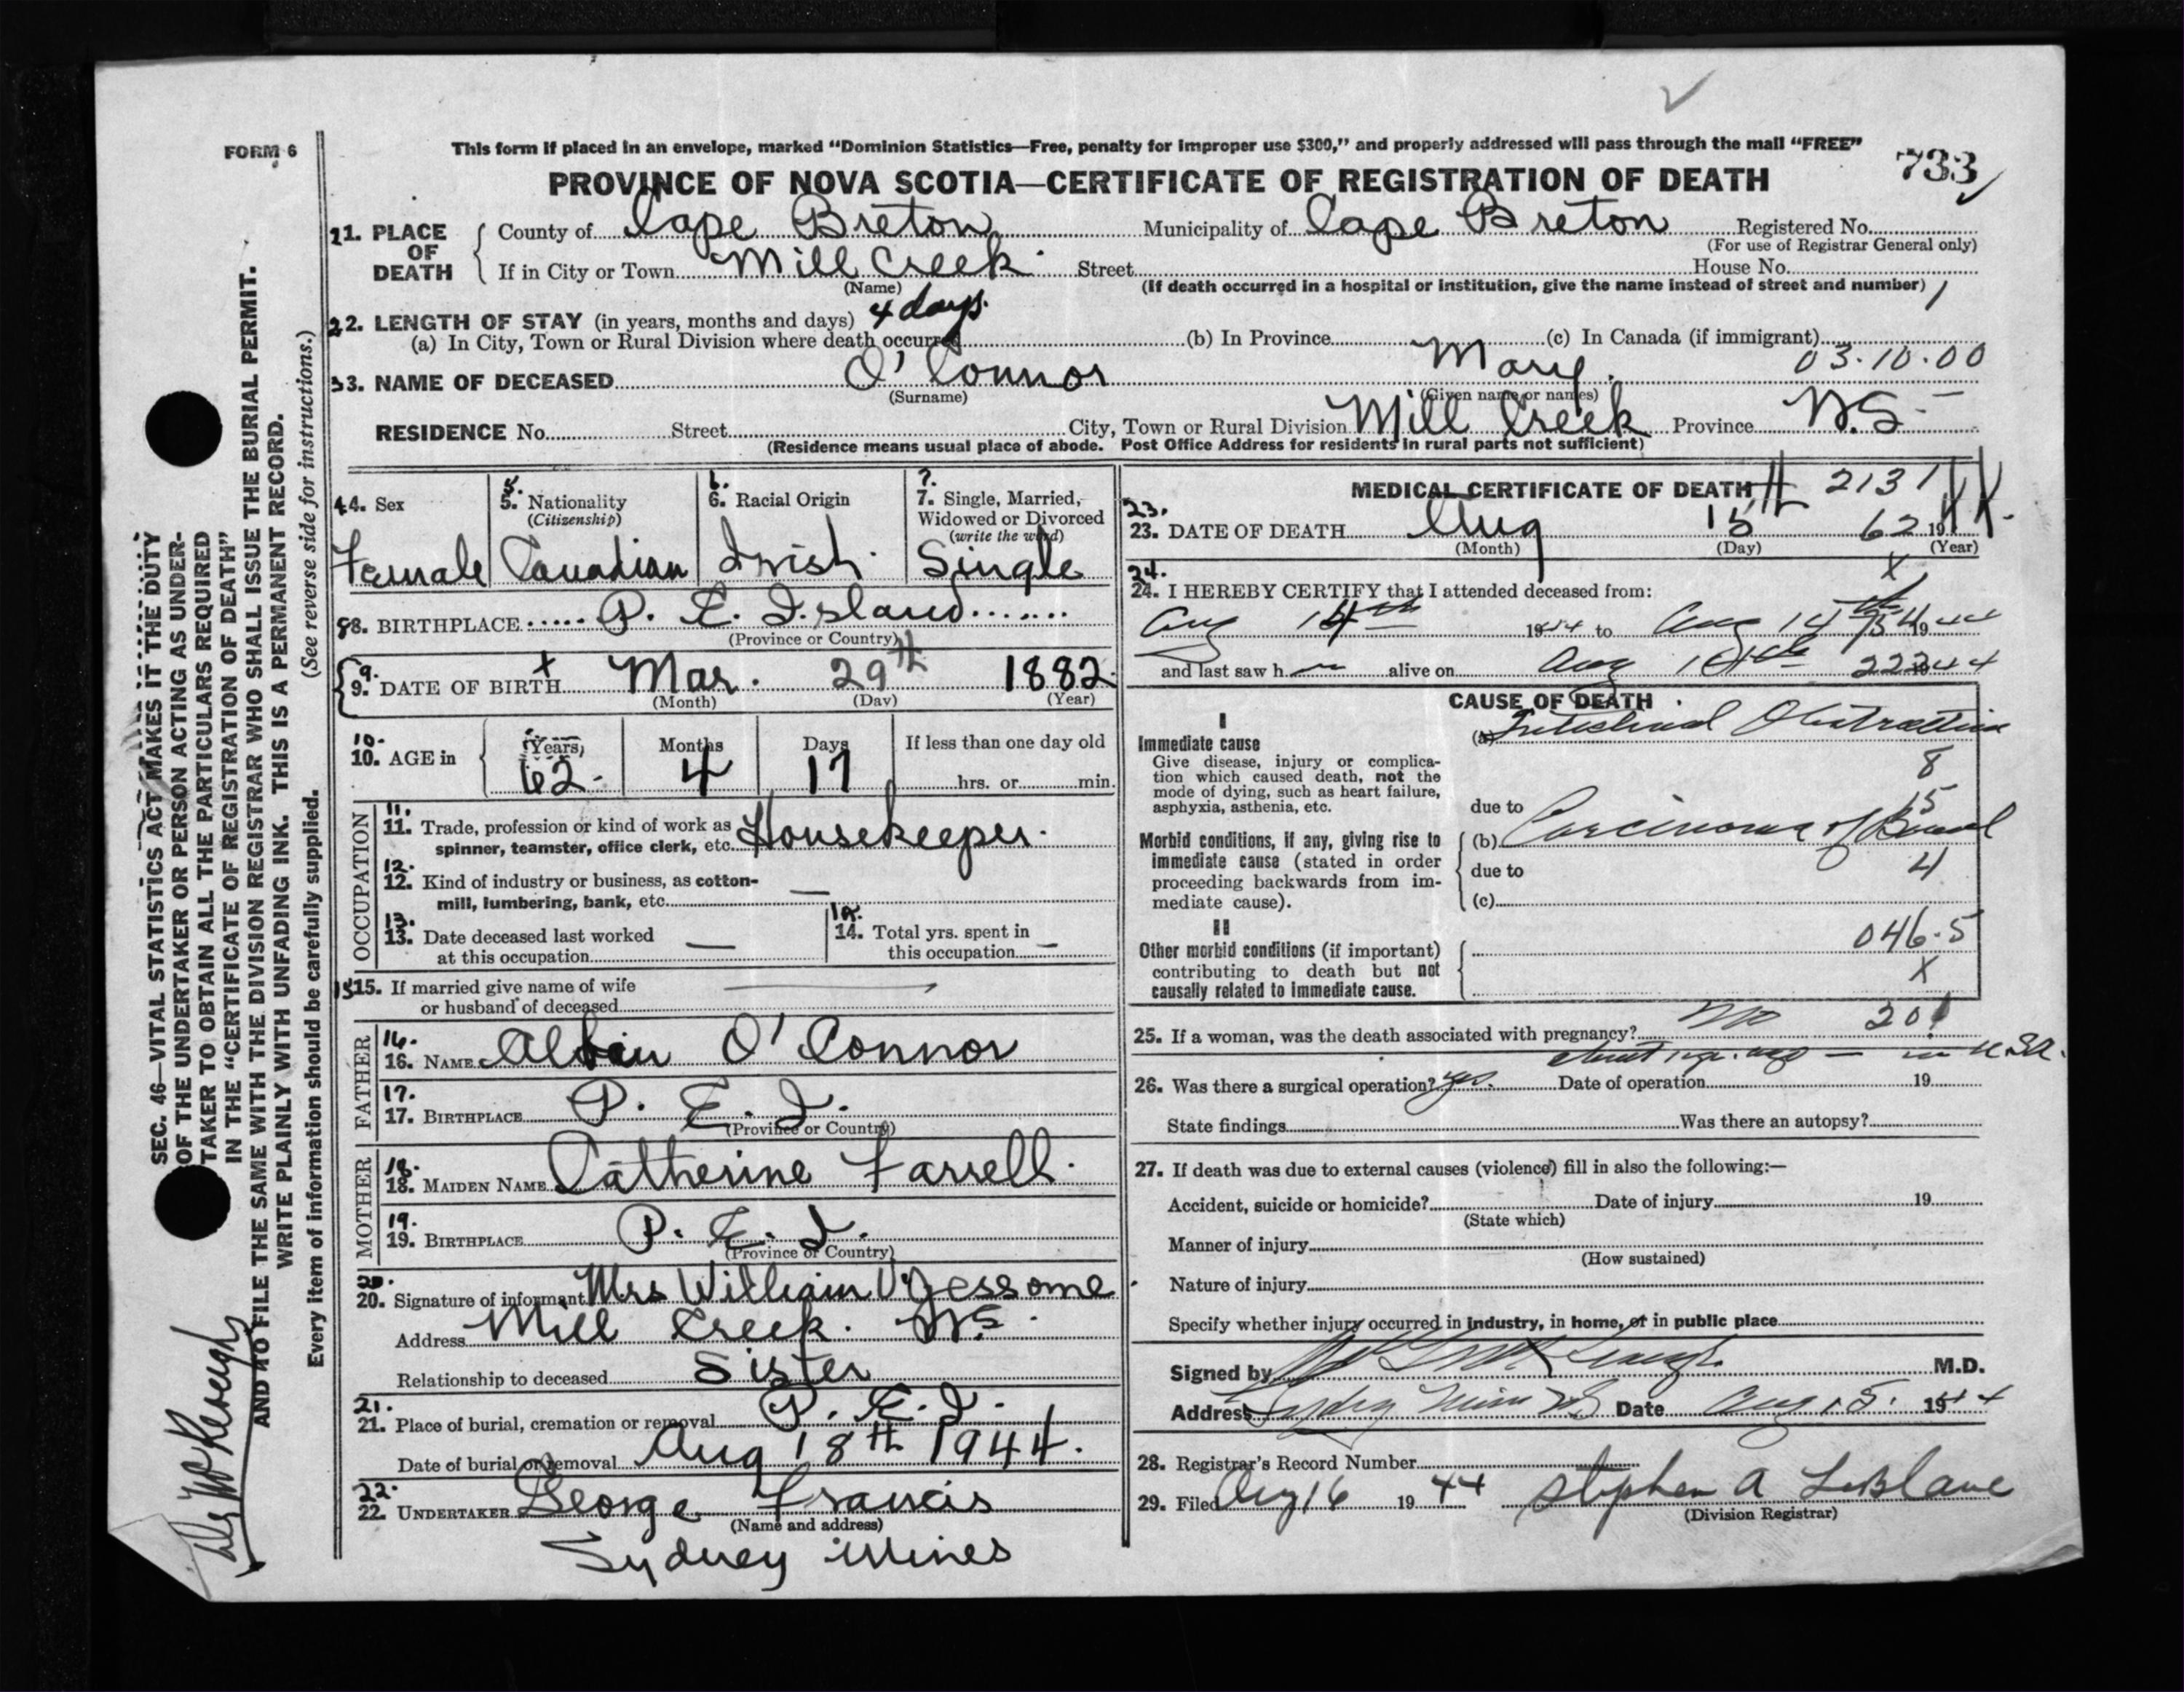 FORM 6
This form if placed in an envelope, marked "Dominion Statistics—Free, penalty for improper use $300," and properly addressed will pass through the mail "FREE"
733
PROVINCE OF NOVA SCOTIA—CERTIFICATE OF REGISTRATION OF DEATH
1. PLACE OF DEATH
County of Cape Breton Municipality of Cape Breton Registered No.
(For use of Registrar General only)
If in City or Town Mill Creek Street House No.
(Name) (If death occurred in a hospital or institution, give the name instead of street and number)
2. LENGTH OF STAY (in years, months and days) 4 days.
(a) In City, Town or Rural Division where death occurred (b) In Province (c) In Canada (if immigrant)
03.10.00
3. NAME OF DECEASED O'Connor Mary.
(Surname) (Given name or names)
RESIDENCE No. Street City, Town or Rural Division Mill Creek Province N.S.
(Residence means usual place of abode. Post Office Address for residents in rural parts not sufficient)
4. Sex
Female
5. Nationality
(Citizenship)
Canadian
6. Racial Origin
Irish
7. Single, Married,
Widowed or Divorced
(write the word)
Single
8. BIRTHPLACE P. E. Island
(Province or Country)
9. DATE OF BIRTH Mar. 29th 1882
(Month) (Day) (Year)
10. AGE in
Years Months Days If less than one day old
62 4 17 hrs. or min.
OCCUPATION
11. Trade, profession or kind of work as
spinner, teamster, office clerk, etc. Housekeeper.
12. Kind of industry or business, as cotton-
mill, lumbering, bank, etc. —
13. Date deceased last worked
at this occupation —
14. Total yrs. spent in
this occupation —
15. If married give name of wife
or husband of deceased
FATHER
16. NAME O'Connor
17. BIRTHPLACE P. E. I.
(Province or Country)
MOTHER
18. MAIDEN NAME Catherine Farrell.
19. BIRTHPLACE P. E. I.
(Province or Country)
20. Signature of informant Mrs William Yessome
Address Mill Creek. N.S.
Relationship to deceased Sister
21. Place of burial, cremation or removal P. E. I.
Date of burial or removal Aug 18th 1944.
22. UNDERTAKER George Francis
(Name and address)
Sydney Mines
MEDICAL CERTIFICATE OF DEATH 2131
23. DATE OF DEATH Aug 15 62 19
(Month) (Day) (Year)
24. I HEREBY CERTIFY that I attended deceased from:
Aug 14th 1944 to Aug 14th 1944
and last saw h alive on Aug 1944
CAUSE OF DEATH
I
Immediate cause
Give disease, injury or complica-
tion which caused death, not the
mode of dying, such as heart failure,
asphyxia, asthenia, etc.
(a) Intestinal Obstruction
8
15
due to
Morbid conditions, if any, giving rise to
immediate cause (stated in order
proceeding backwards from im-
mediate cause).
(b) Carcinoma of Bowel
due to
4
(c)
II
Other morbid conditions (if important)
contributing to death but not
causally related to immediate cause.
046.5
X
25. If a woman, was the death associated with pregnancy? No 201
26. Was there a surgical operation? yes. Date of operation 19
State findings Was there an autopsy?
27. If death was due to external causes (violence) fill in also the following:—
Accident, suicide or homicide? Date of injury 19
(State which)
Manner of injury
(How sustained)
Nature of injury
Specify whether injury occurred in industry, in home, or in public place
Signed by M.D.
Address Sydney Mines NS Date Aug 15. 1944
28. Registrar's Record Number
29. Filed Aug 16 1944 Stephen A LeBlanc
(Division Registrar)
SEC. 46—VITAL STATISTICS ACT MAKES IT THE DUTY
OF THE UNDERTAKER OR PERSON ACTING AS UNDER-
TAKER TO OBTAIN ALL THE PARTICULARS REQUIRED
IN THE "CERTIFICATE OF REGISTRATION OF DEATH"
AND TO FILE THE SAME WITH THE DIVISION REGISTRAR WHO SHALL ISSUE THE BURIAL PERMIT.
WRITE PLAINLY WITH UNFADING INK. THIS IS A PERMANENT RECORD.
Every item of information should be carefully supplied. (See reverse side for instructions.)